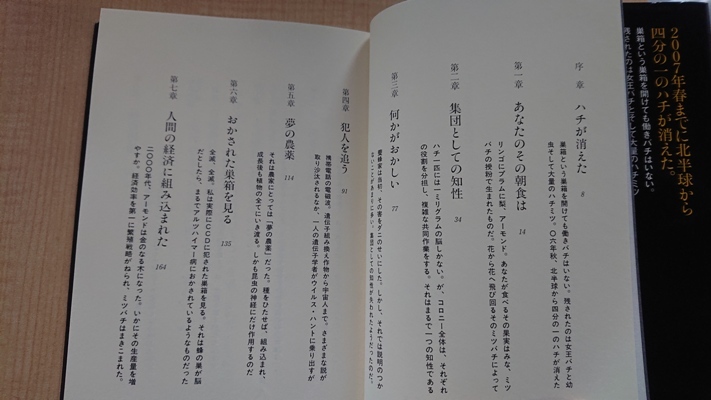 2007年春までに北半球から
四分の一のハチが消えた。
巣箱という巣箱を開けても働きバチはいない。
残されたのは女王バチとそして大量のハチミツ
序章 ハチが消えた 8
巣箱という巣箱を開けても働きバチはいない。残されたのは女王バチと幼
虫そして大量のハチミツ。〇六年秋、北半球から四分の一のハチが消えた
第一章 あなたのその朝食は 14
リンゴにプラムに梨、アーモンド。あなたが食べるその果実はみな、ミツ
バチの授粉で生まれたものだ。花から花へ飛び回るそのミツバチによって
第二章 集団としての知性 34
ハチ一匹には一ミリグラムの脳しかない。が、コロニー全体は、それぞれ
の役割を分担し、複雑な共同作業をする。それはまるで一つの知性である
第三章 何かがおかしい 77
養蜂家は当初、その害をダニのせいにした。しかし、それでは説明のつか
ないことがあまりに多い。集団としての知性が失われたようだったのだ。
第四章 犯人を追う 91
携帯電話の電磁波、遺伝子組み換え作物から宇宙人まで。さまざまな説が
取り沙汰されるなか、一人の遺伝子学者がウイルス・ハントに乗り出すが
第五章 夢の農薬 114
それは農家にとっては「夢の農薬」だった。種をひたせば、組み込まれ、
成長後も植物の全てにいき渡る。しかも昆虫の神経にだけ作用するのだ
第六章 おかされた巣箱を見る 135
全滅、全滅。私は実際にCCDに犯された巣箱を見る。それは蜂の巣が脳
だとしたら、まるでアルツハイマー病におかされているようなものだった
第七章 人間の経済に組み込まれた 164
二〇〇〇年代、アーモンドは金のなる木になった。いかにその生産量を増
やすか。経済効率を第一に繁殖戦略がねられ、ミツバチはまきこまれた。